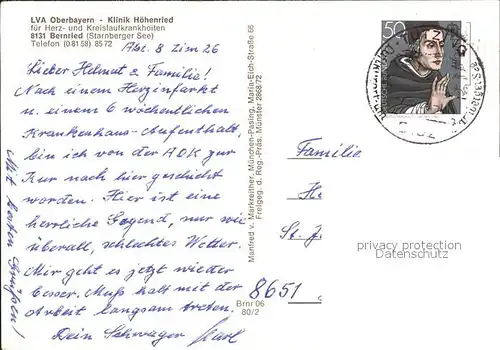 LVA Oberbayern - Klinik Höhenried
für Herz- und Kreislaufkrankheiten
8131 Bernried (Starnberger See)
Telefon (08158) 8572
Abt. 8 Zim 26
Lieber Helmut & Familie!
Nach einem Herzinfarkt
u. einem 6 wöchentlichen
Krankenhaus-Aufenthalt,
bin ich von der AOK zur
Kur nach hier geschickt
worden. Hier ist eine
herrliche Gegend, nur wie
überall, schlechtes Wetter.
Mir geht es jetzt wieder
besser. Muß halt mit der
Arbeit langsam treten.
Dein Schwager Karl
Mit besten Grüßen!
Manfred v. Markreither, München-Pasing, Maria-Eich-Straße 66
Freigeg. d. Reg.-Präs. Münster 2868/72
Brnr 06
80/2
50
Familie
He
St. J
8651
privacy protection
Datenschutz